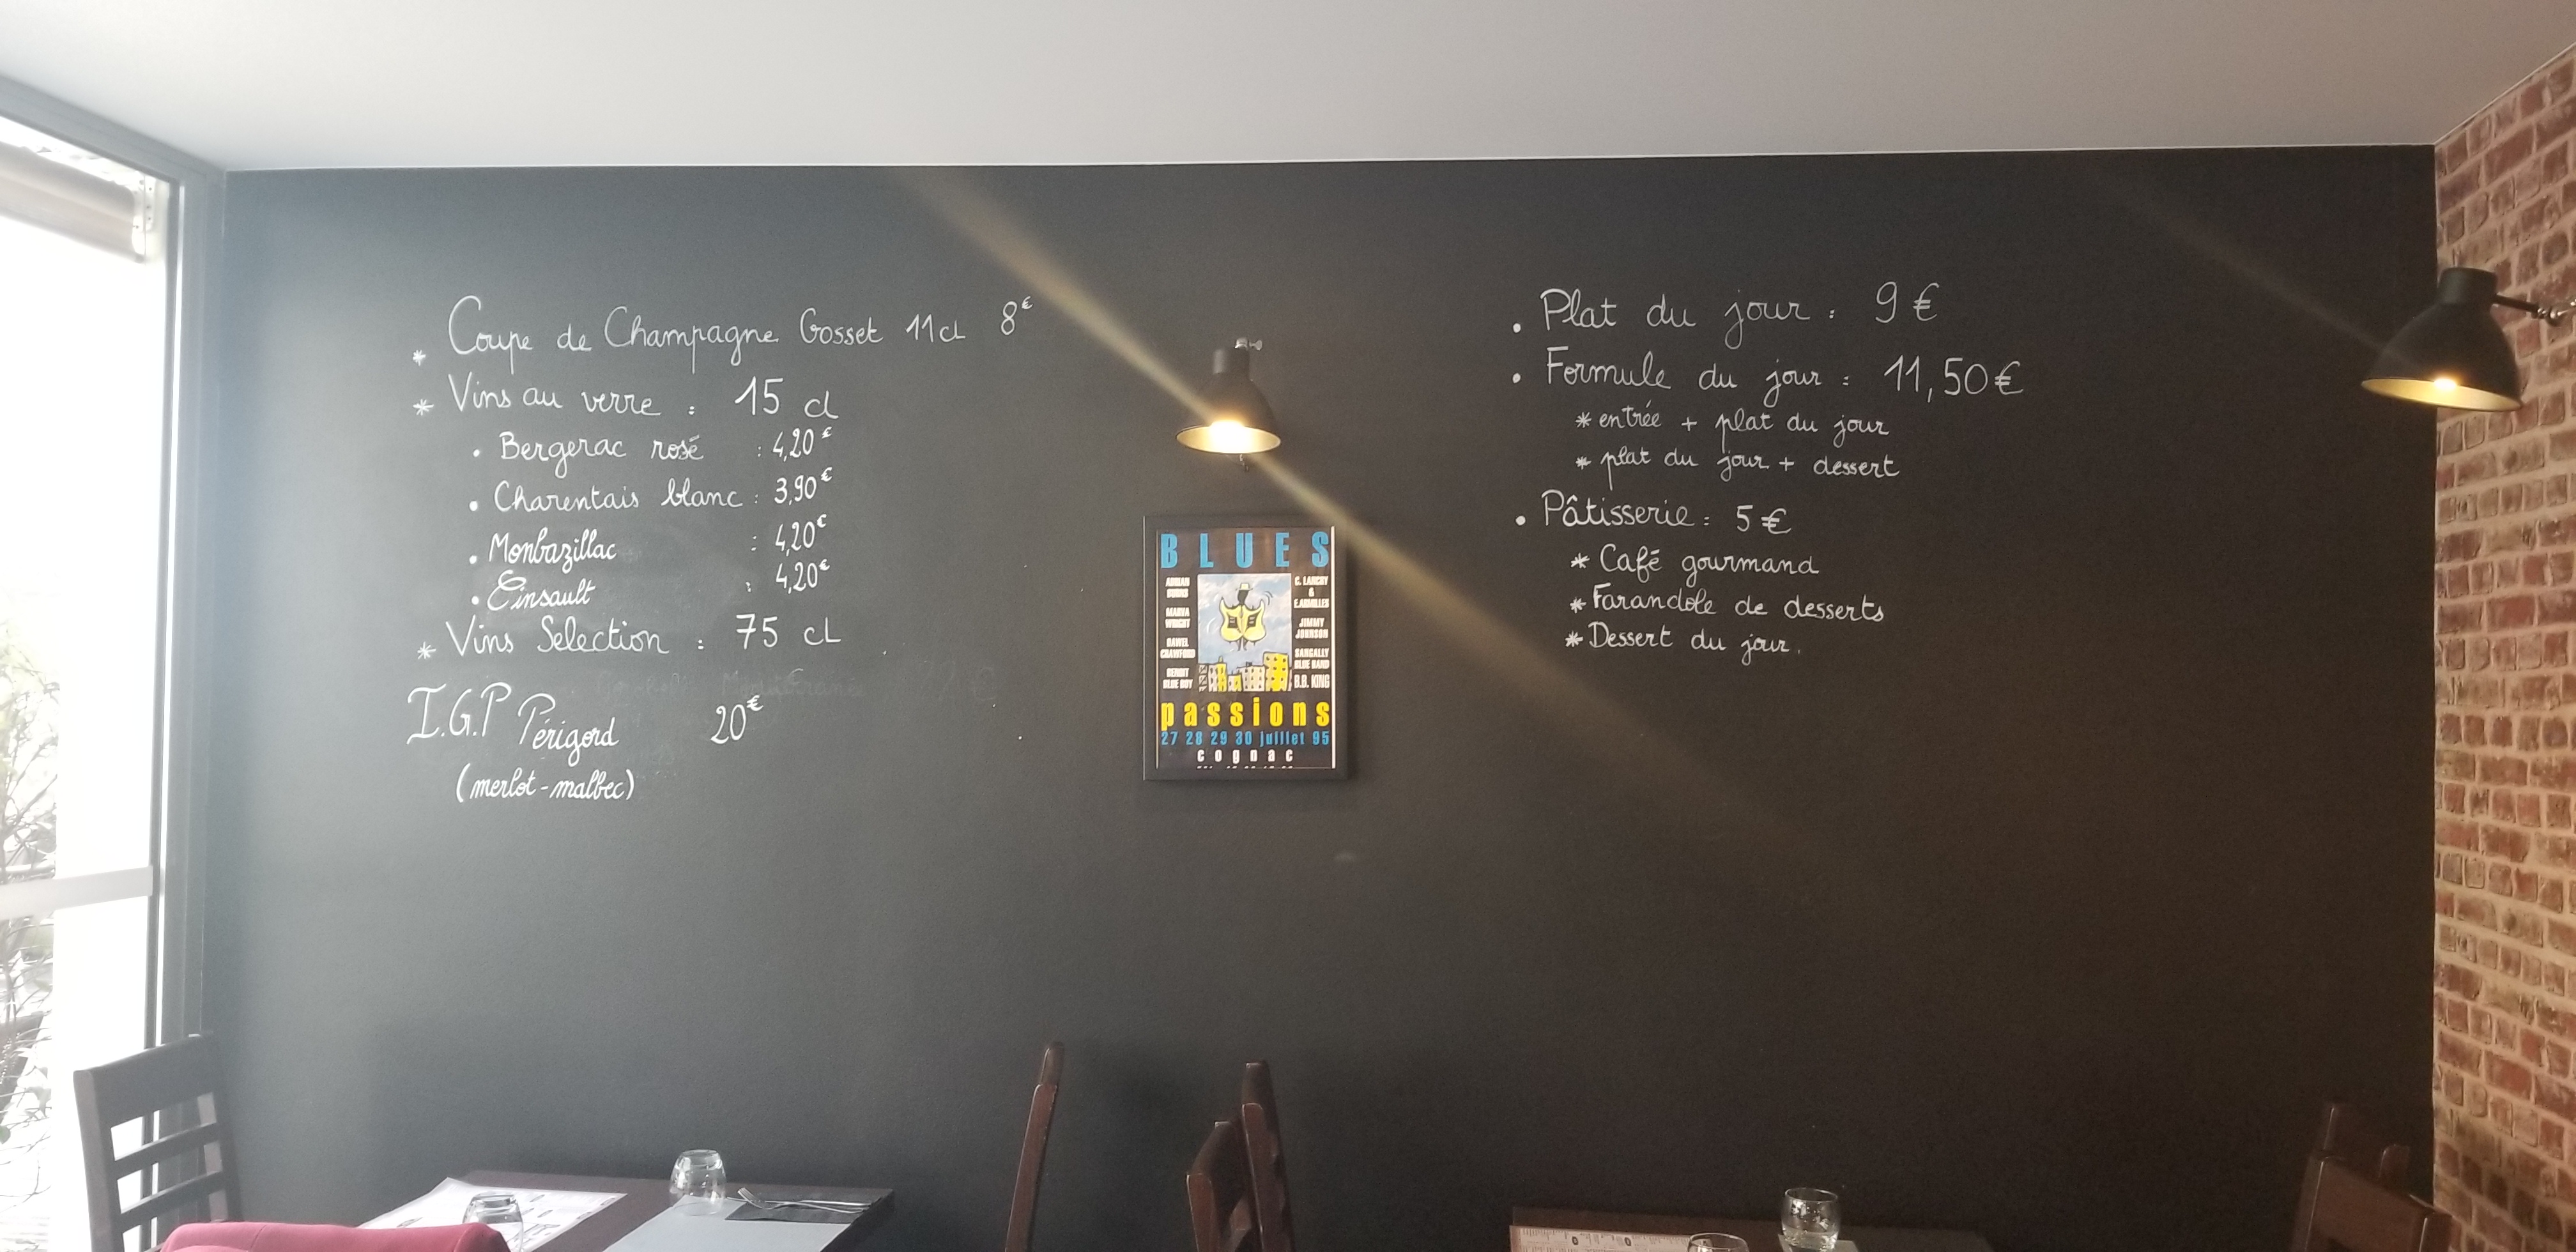 * Coupe de Champagne Gosset 11cl 8€
* Vins au verre : 15 cl
• Bergerac rosé : 4,20€
• Charentais blanc : 3,90€
• Monbazillac : 4,20€
• Cinsault : 4,20€
* Vins Selection : 75 cL
I.G.P Périgord 20€
(merlot-malbec)
BLUES
MARVA WRIGHT
C. LANCRY & E.ARMILLES
JIMMY JOHNSON
SANGALLY BLUE BAND
B.B. KING
passions
27 28 29 30 juillet 95
cognac
• Plat du jour : 9€
• Formule du jour : 11,50€
* entrée + plat du jour
* plat du jour + dessert
• Pâtisserie : 5€
* Café gourmand
* Farandole de desserts
* Dessert du jour.